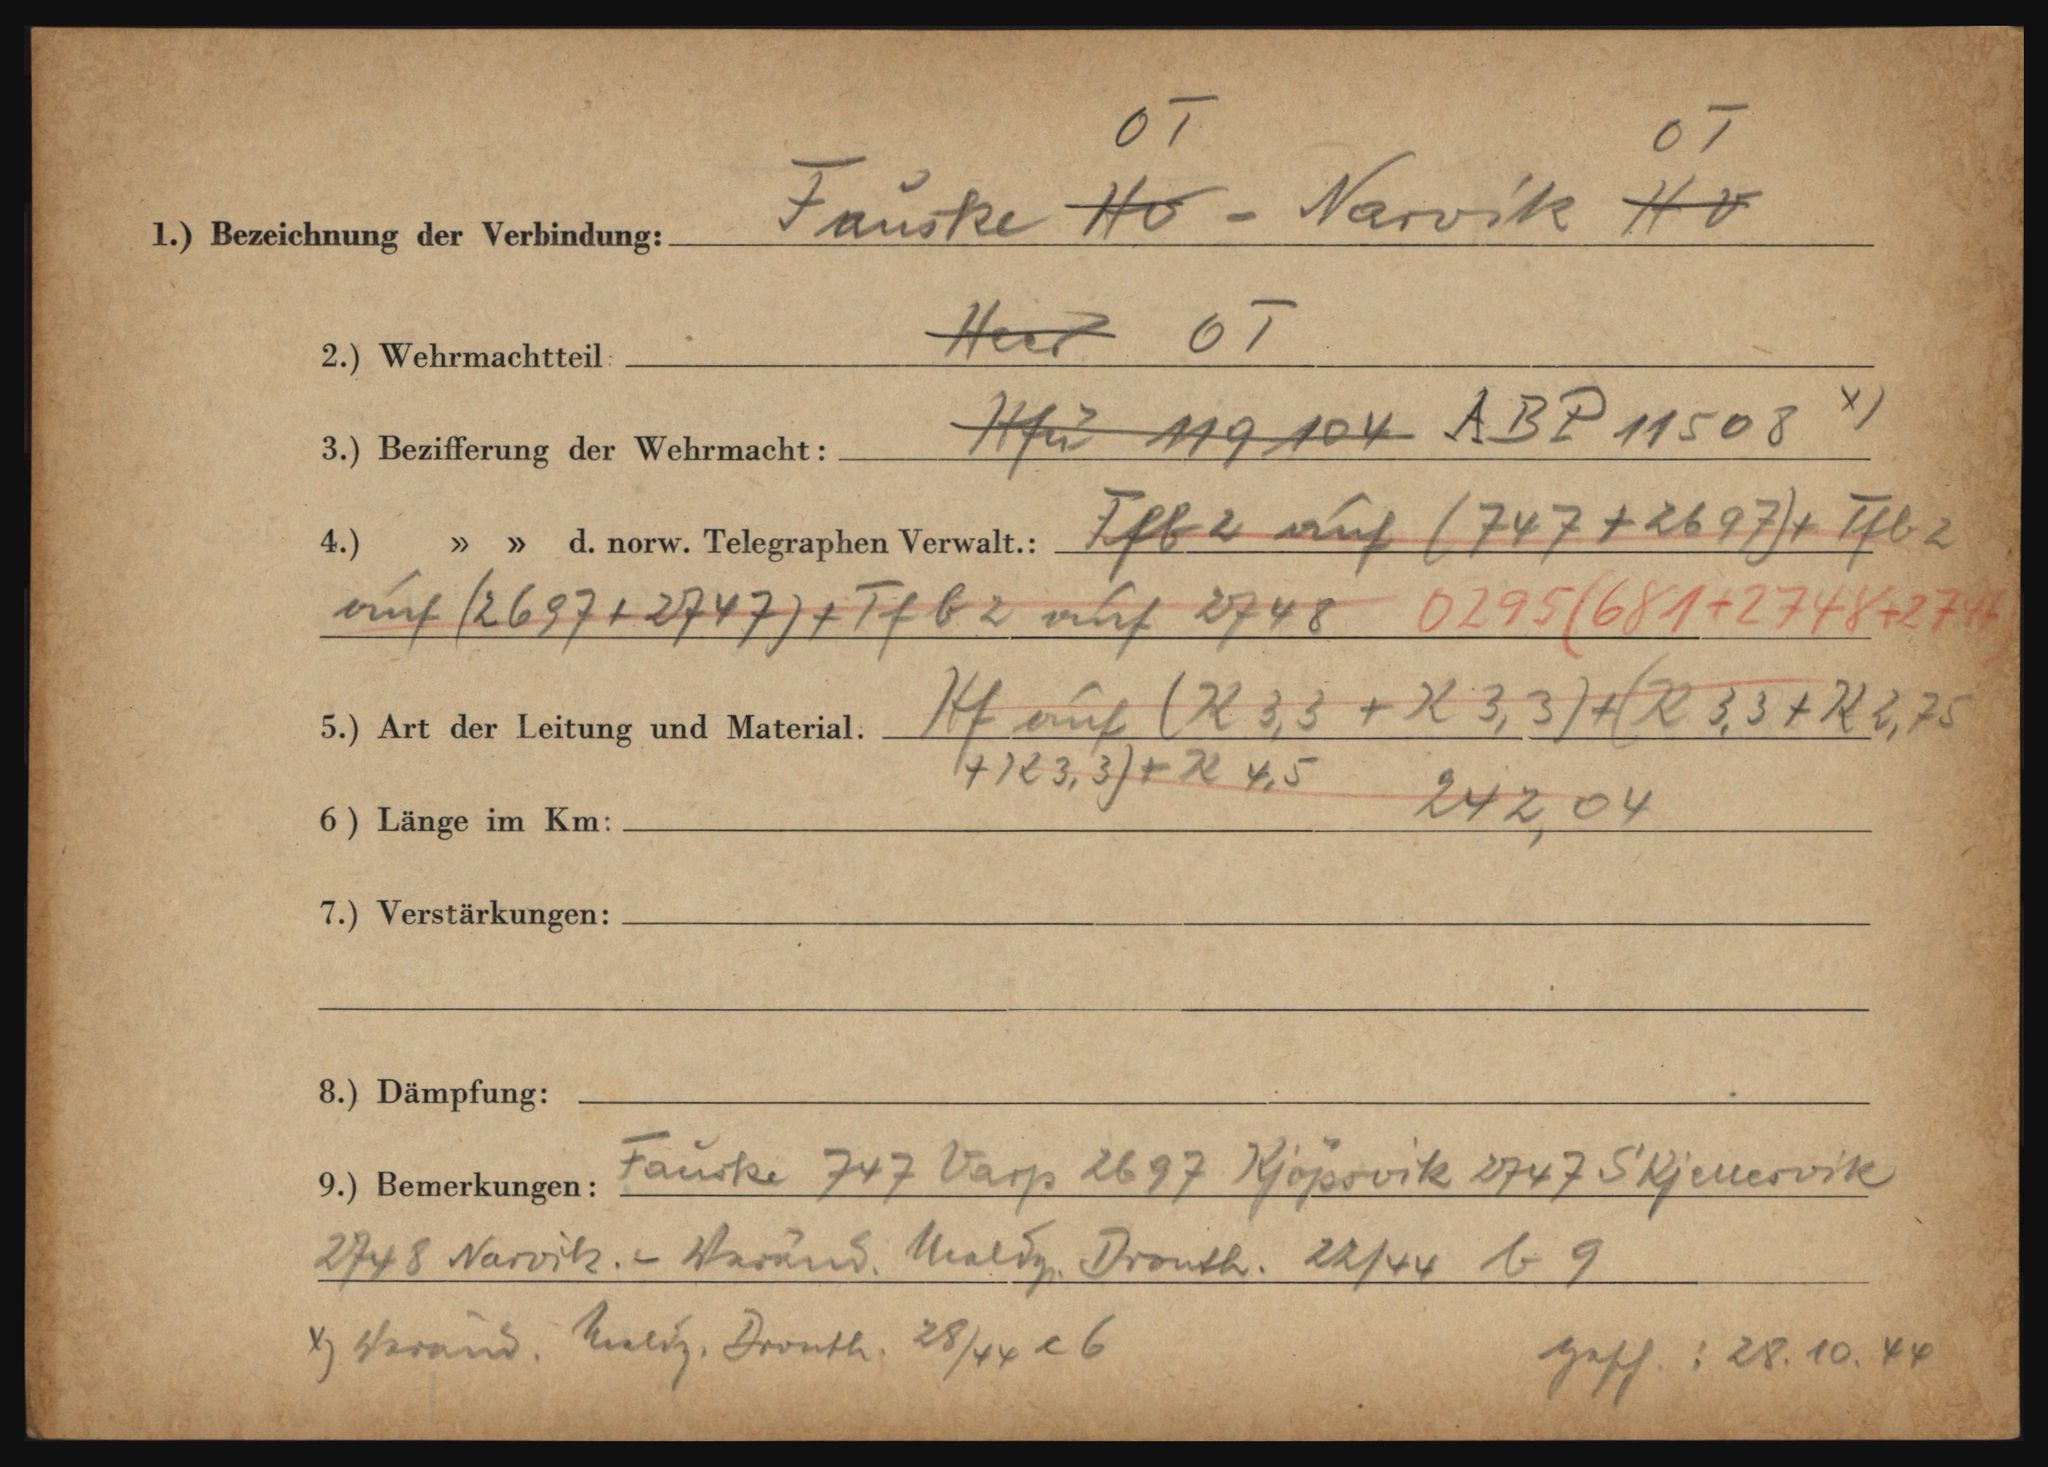 OT OT
1.) Bezeichnung der Verbindung: Fauske Hv - Narvik Hv
2.) Wehrmachtteil: Heer OT
3.) Bezifferung der Wehrmacht: Hfü 119 104 ABP 11508 x)
4.) » » d. norw. Telegraphen Verwalt.: Tfb 2 auf (747 + 2697) + Tfb 2
auf (2697 + 2747) + Tfb 2 auf 2748 0295 (681+2748+
5.) Art der Leitung und Material. Hf auf (K 3,3 + K 3,3) + (K 3,3 + K 2,75
+ K 3,3) + K 4,5
6) Länge im Km: 242,04
7.) Verstärkungen:
8.) Dämpfung:
9.) Bemerkungen: Fauske 747 Varp 2697 Kjöpsvik 2747 Skjellesvik
2748 Narvik. - Veränd. Meldg. Dronth. 22/44 b 9
x) Veränd. Meldg. Dronth. 28/44 c 6 : 28.10.44